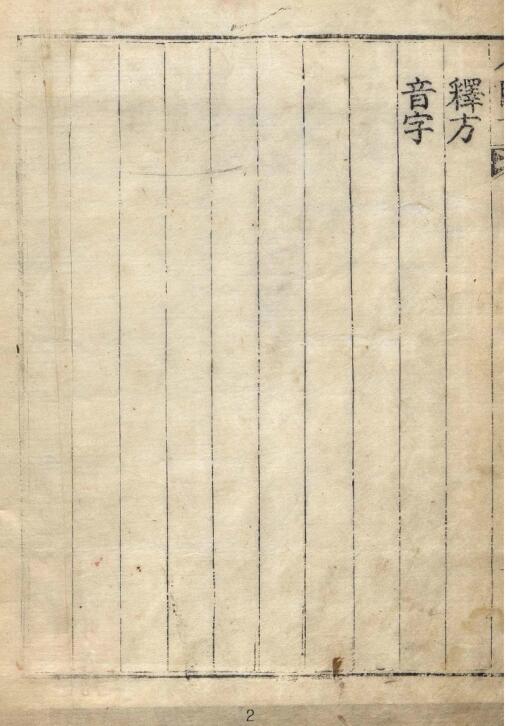 釋方
音字
2